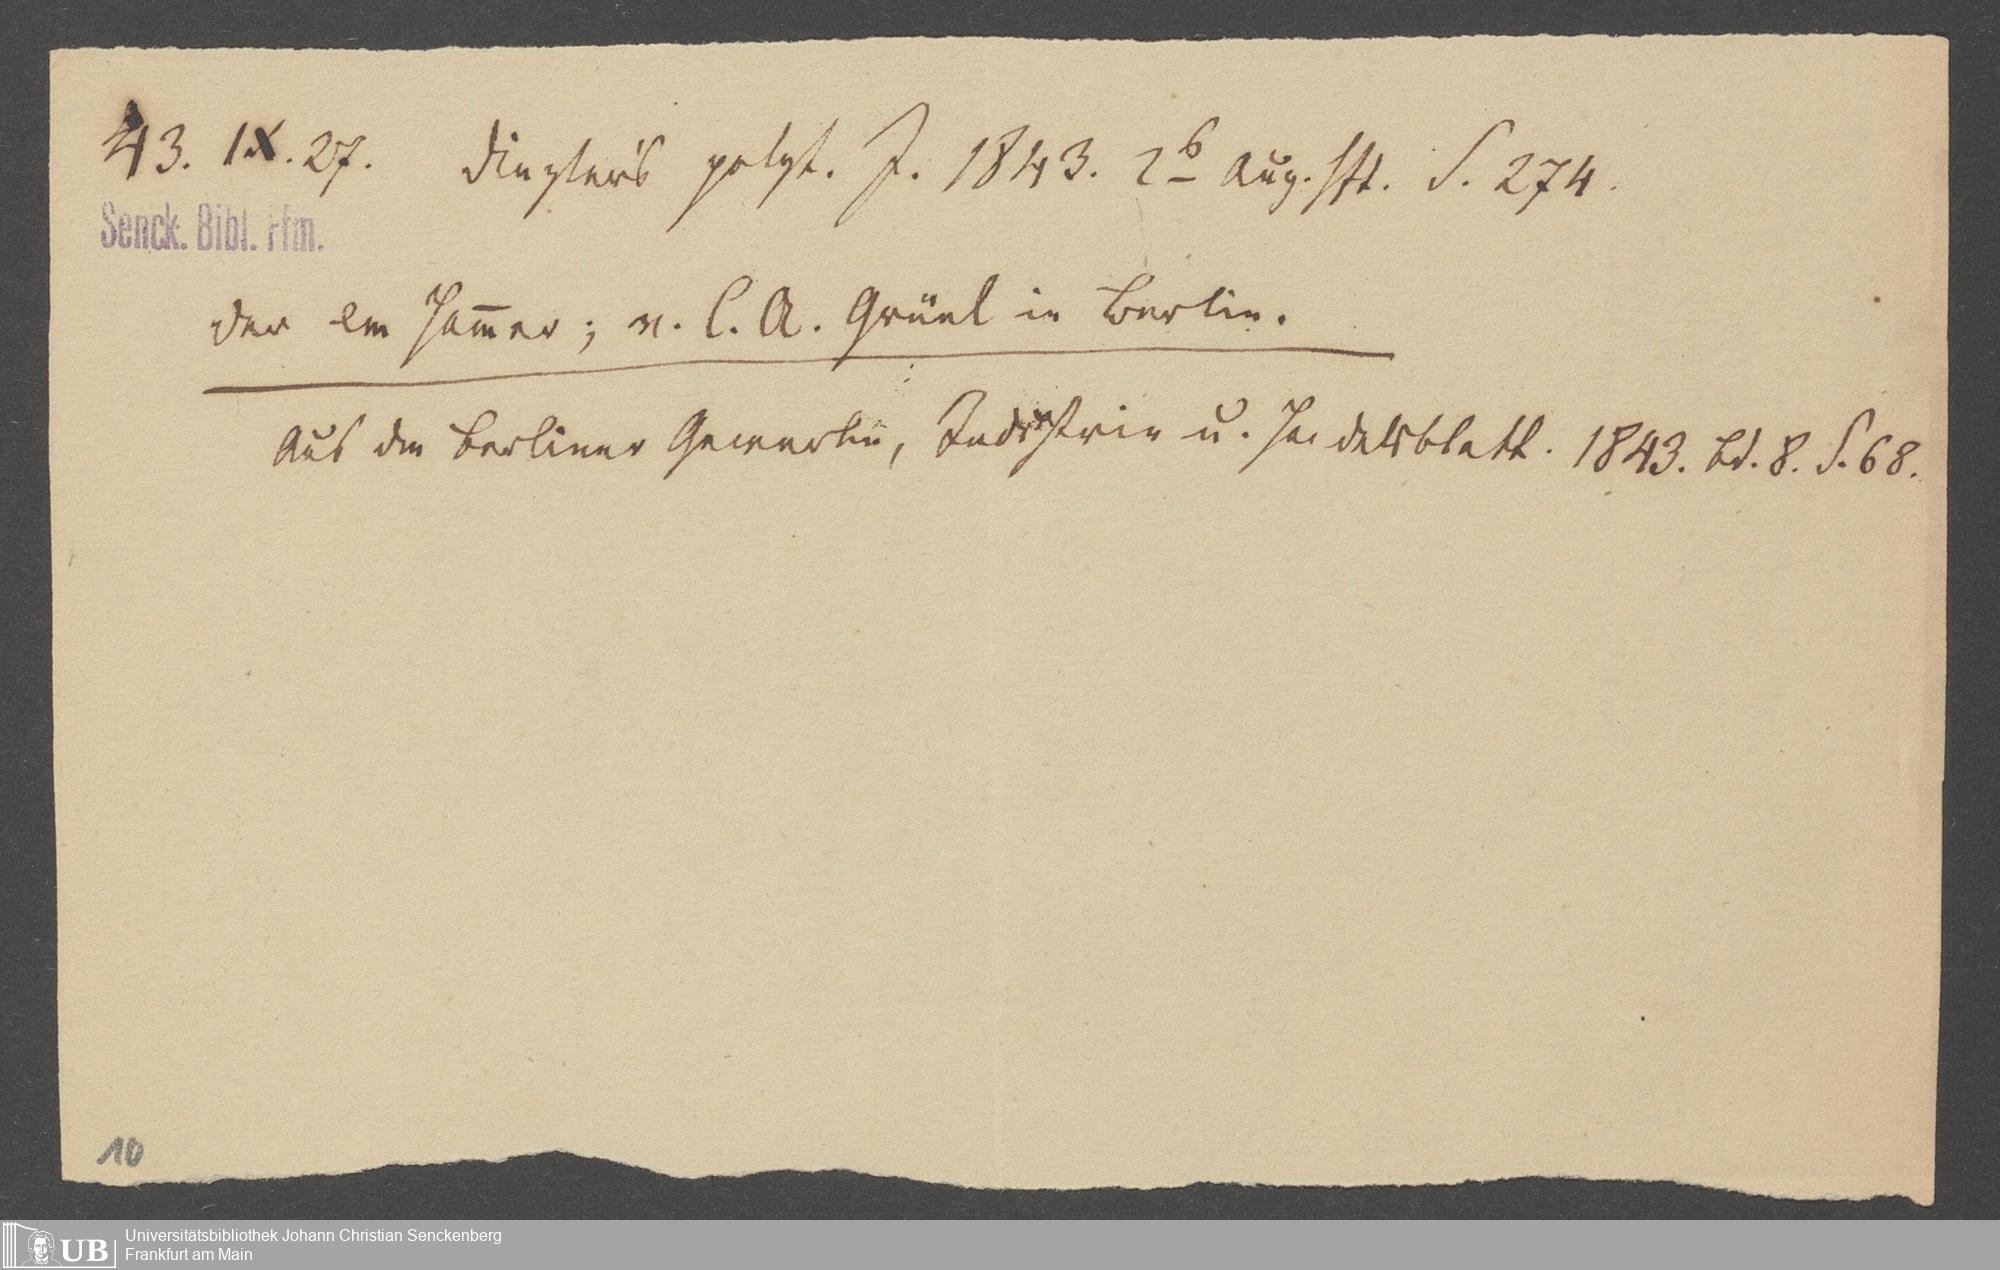 43. IX. 27. Dingler's polyt. J. 1843. 2s Aug. Hft. S. 274.
Senck. Bibl. Ffm.
der em Hammer; v. C. A. Grüel in Berlin.
Aus dem Berliner Gewerbe, Industrie u. Handelsblatt. 1843. Bd. 8. S. 68.
10
UB
Universitätsbibliothek Johann Christian Senckenberg
Frankfurt am Main